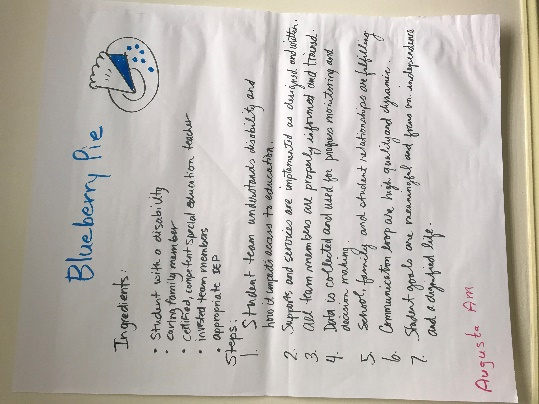 Blueberry Pie
Ingredients:
• Student with a disability
• caring family member
• certified, competent special education teacher
• invested team members
• appropriate IEP
Steps:
1. Student team understands disability and
how it impacts access to education.
2. Supports and services are implemented as designed and written.
3. All team members are properly informed and trained.
4. Data is collected and used for progress monitoring and
decision making.
5. School, family and student relationships are fulfilling
6. Communication loop are high quality and dynamic.
7. Student goals are meaningful and focus on independence
and a dignified life.
Augusta Am